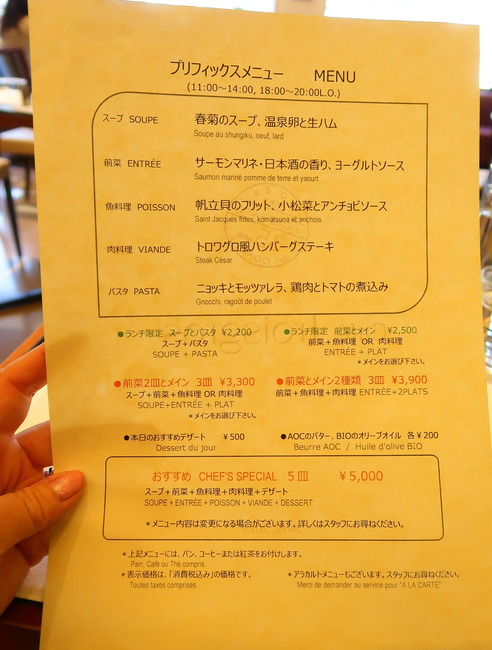 プリフィックスメニュー MENU
(11:00～14:00, 18:00～20:00L.O.)
スープ SOUPE 春菊のスープ、温泉卵と生ハム
Soupe au shungiku, oeuf, lard
前菜 ENTRÉE サーモンマリネ・日本酒の香り、ヨーグルトソース
Saumon mariné pomme de terre et yaourt
魚料理 POISSON 帆立貝のフリット、小松菜とアンチョビソース
Saint Jacques frites, komatsuna et anchois
肉料理 VIANDE トロワグロ風ハンバーグステーキ
Steak César
パスタ PASTA ニョッキとモッツァレラ、鶏肉とトマトの煮込み
Gnocchi, ragoût de poulet
●ランチ限定 スープとパスタ ¥2,200
スープ+パスタ
SOUPE + PASTA
●ランチ限定 前菜とメイン ¥2,500
前菜+魚料理 OR 肉料理
ENTRÉE + PLAT
＊メインをお選び下さい。
●前菜2皿とメイン 3皿 ¥3,300
スープ+前菜+魚料理 OR 肉料理
SOUPE+ENTRÉE + PLAT
＊メインをお選び下さい。
●前菜とメイン2種類 3皿 ¥3,900
前菜+魚料理+肉料理 ENTRÉE+2PLATS
●本日のおすすめデザート ¥500
Dessert du jour
●AOCのバター、BIOのオリーブオイル 各¥200
Beurre AOC / Huile d'olive BIO
おすすめ CHEF'S SPECIAL 5皿 ¥5,000
スープ+前菜+魚料理+肉料理+デザート
SOUPE + ENTRÉE + POISSON + VIANDE + DESSERT
＊メニュー内容は変更になる場合がございます。詳しくはスタッフにお尋ねください。
＊上記メニューには、パン、コーヒーまたは紅茶をお付けします。
Pain, Café ou Thé compris.
＊表示価格は、「消費税込み」の価格です。
Toutes taxes comprises
＊アラカルトメニューもございます。スタッフにお尋ねください。
Merci de demander au service pour "A LA CARTE"